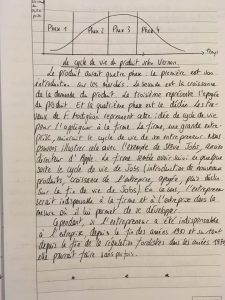 Phase 1 Phase 2 Phase 3 Phase 4
Temps
Le cycle de vie du produit John Vernon.
Le produit aurait quatre phase : la première est son
introduction sur les marchés. La seconde est la croissance
de la demande du produit. La troisième représente l'apogée
du produit. Et la quatrième phase est le déclin. Les tra-
veux de T. Hodgkison reprennent cette idée de cycle de vie
pour l'appliquer à la firme. La firme, une grande entre-
prise, suivrait le cycle de vie de son entrepreneur. Nous
pouvons illustrer cela avec l'exemple de Steve Jobs, ancien
directeur d'Apple. La firme semble avoir suivi en quelque
sorte le cycle de vie de Jobs (introduction de nouveaux
produits, croissance de l'entreprise, apogée, puis déclin
sur la fin de vie de Jobs). En ce sens, l'entrepreneur
serait indispensable à la firme et à l'entreprise dans la
mesure où il lui permet de se développer.
Cependant, si l'entrepreneur a été indispensable
à l'entreprise, depuis la fin des années 1930 et surtout
depuis la fin de la régulation fordiste dans les années 1970
elle pourrait faire sans